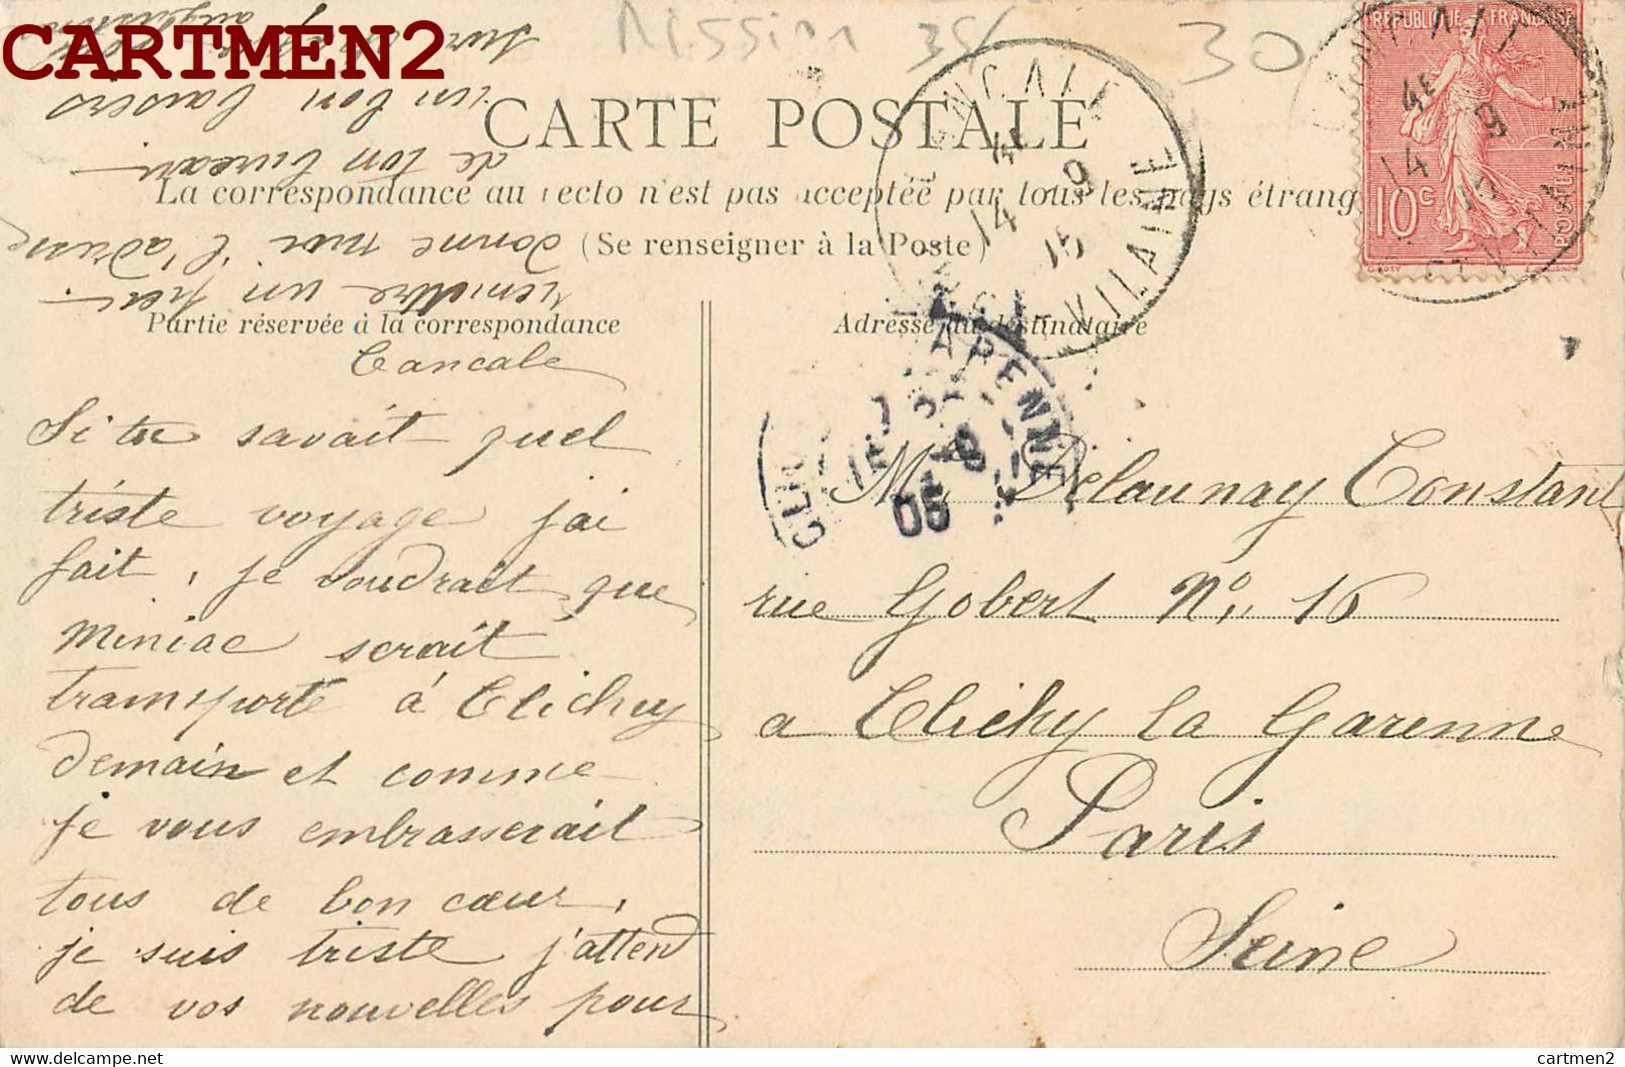 CARTMEN2
Mission 35/
30/
RÉPUBLIQUE FRANÇAISE
POSTES
10c
CARTE POSTALE
La correspondance au recto n'est pas acceptée par tous les pays étrang
(Se renseigner à la Poste)
Partie réservée à la correspondance
Adresse du destinataire
CANCALE
4E
14 9
VILAINE
Cancale
Si tu savait quel
triste voyage jai
fait, je voudrait que
Miniac serait
transporté à Clichy
demain et comme
je vous embrasserait
tous de bon cœur,
je suis triste j'attend
de vos nouvelles pour
remettre un peu.
donne moi l'adresse
de ton bureau
un bon baisers
sur
M. Delaunay Constant
rue Gobert No. 16
a Clichy la Garenne
Paris
Seine
cartmen2
cartmen2